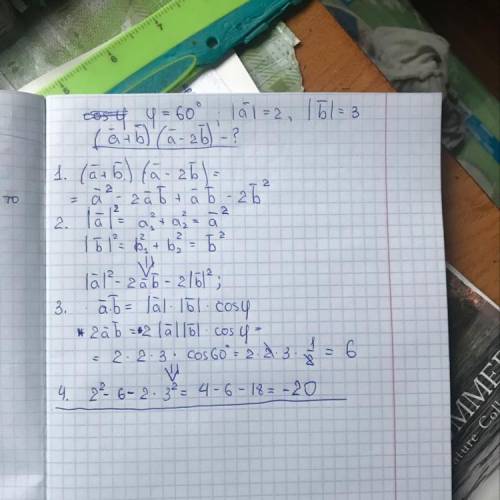 cos φ φ = 60°, |a̅| = 2, |b̅| = 3
(a̅+b̅)(a̅-2b̅) - ?
1. (a̅+b̅)(a̅-2b̅) =
= a̅² - 2a̅b̅ + a̅b̅ - 2b̅²
2. |a̅|² = a₁² + a₂² = a̅²
|b̅|² = b₁² + b₂² = b̅²
⇓
|a̅|² - 2a̅b̅ - 2|b̅|²;
3. a̅·b̅ = |a̅|·|b̅|·cos φ
* 2a̅b̅ = 2|a̅||b̅|·cos φ =
= 2·2·3·cos 60° = 2·2·3·1/2 = 6
⇓
4. 2² - 6 - 2·3² = 4 - 6 - 18 = -20
то
MMER
ature Colle